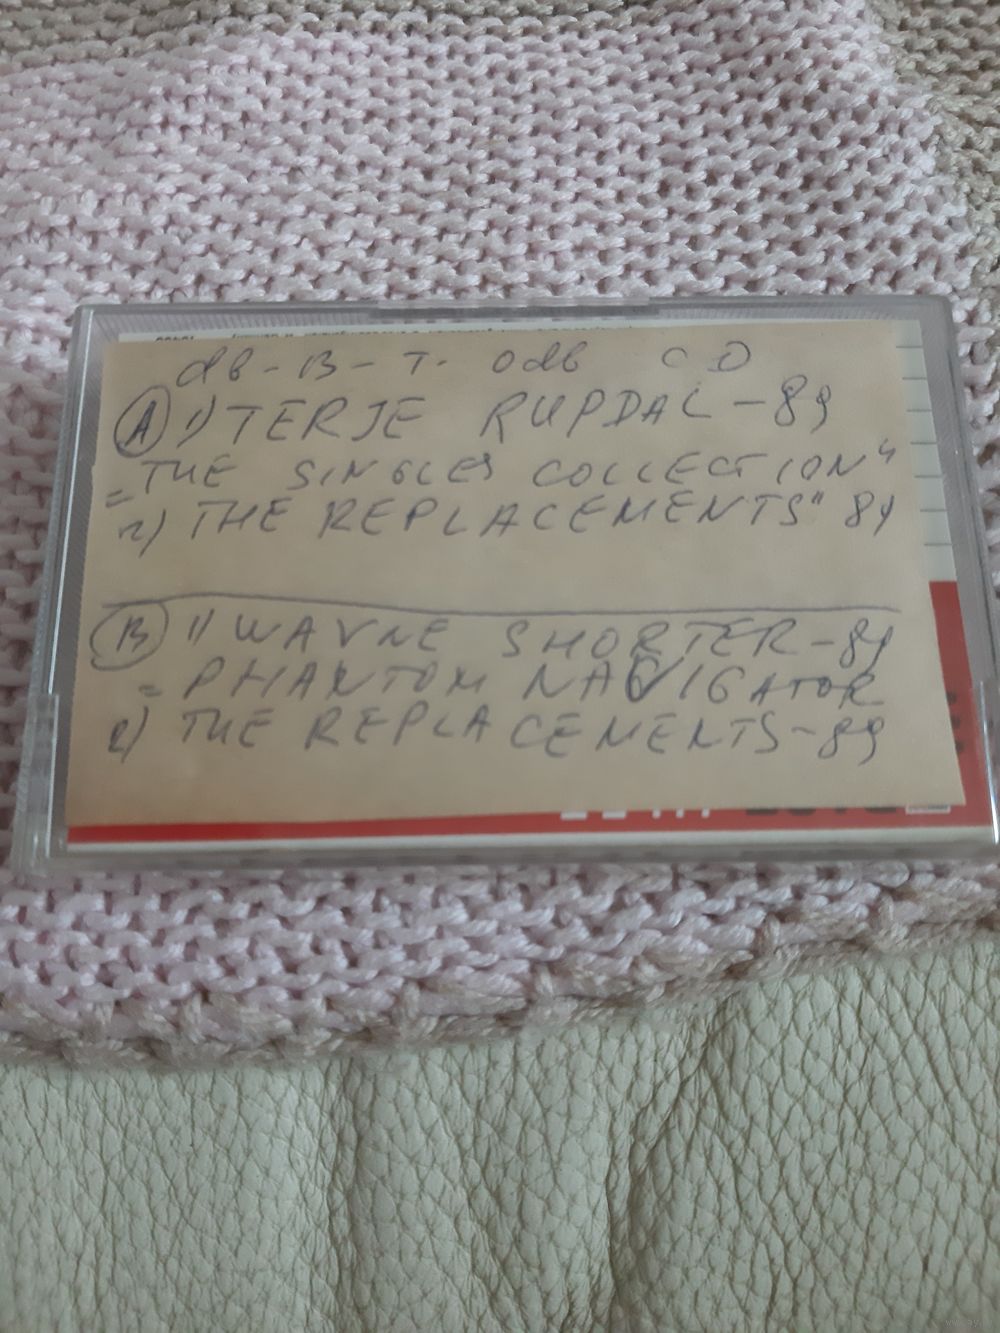 dB-B-T. OdB CD
(A) 1) TERJE RUPDAL-89
="THE SINGLES COLLECTION"
2) THE REPLACEMENTS" 89
(B) 1) WAYNE SHORTER-89
= PHANTOM NAVIGATOR
2) THE REPLACEMENTS-89